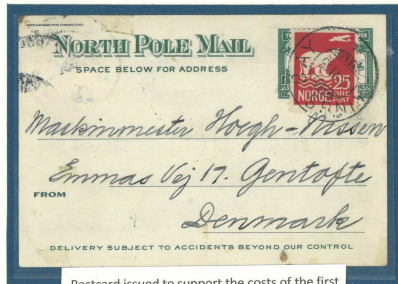 NORTH POLE MAIL
SPACE BELOW FOR ADDRESS
25
NORGE ØRE
POST
Maskinmester Hoegh-Nissen
Emmas Vej 17. Gentofte
FROM
Denmark
DELIVERY SUBJECT TO ACCIDENTS BEYOND OUR CONTROL
Postcard issued to support the costs of the first